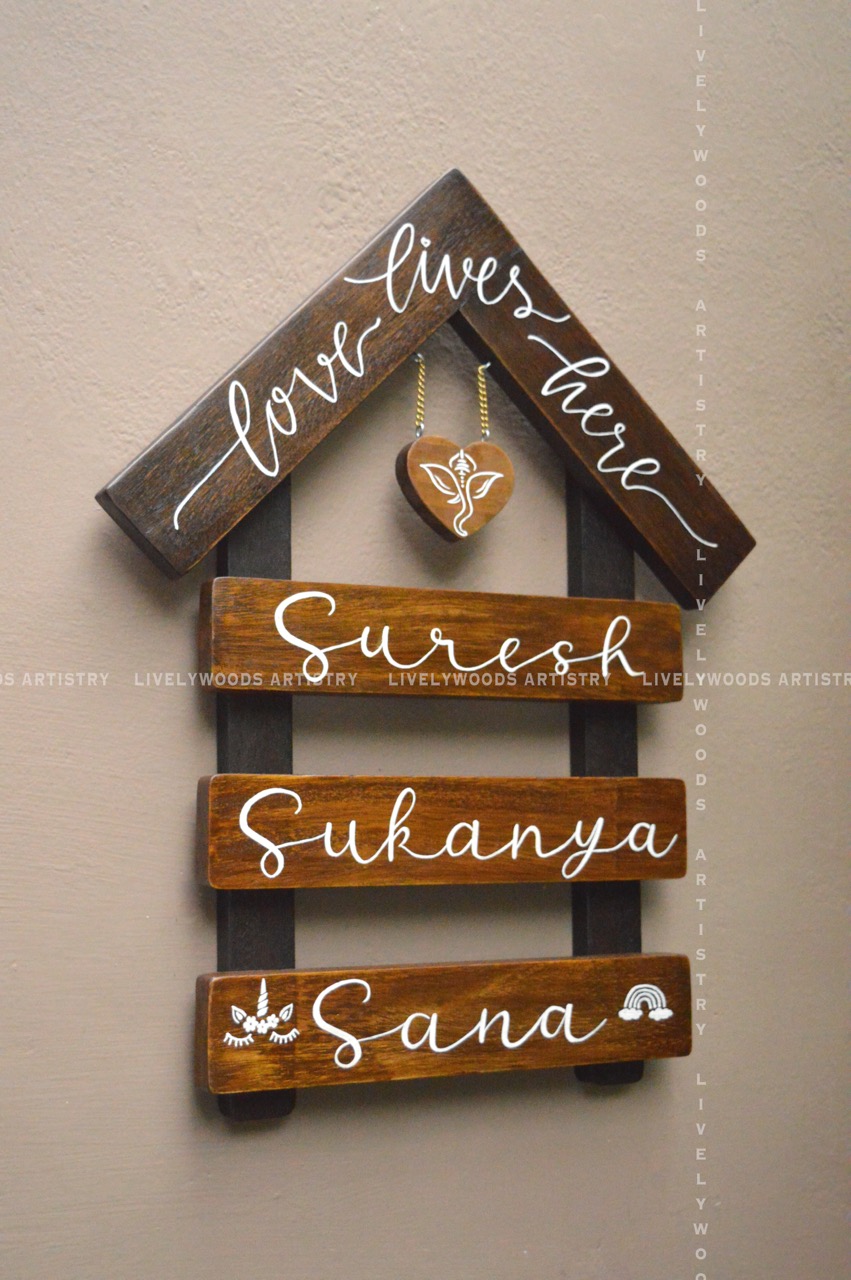 love lives here
Suresh
Sukanya
Sana
LIVELYWOODS ARTISTRY LIVELYWOODS ARTISTRY LIVELYWO
DS ARTISTRY LIVELYWOODS ARTISTRY LIVELYWOODS ARTISTRY LIVELYWOODS ARTISTR